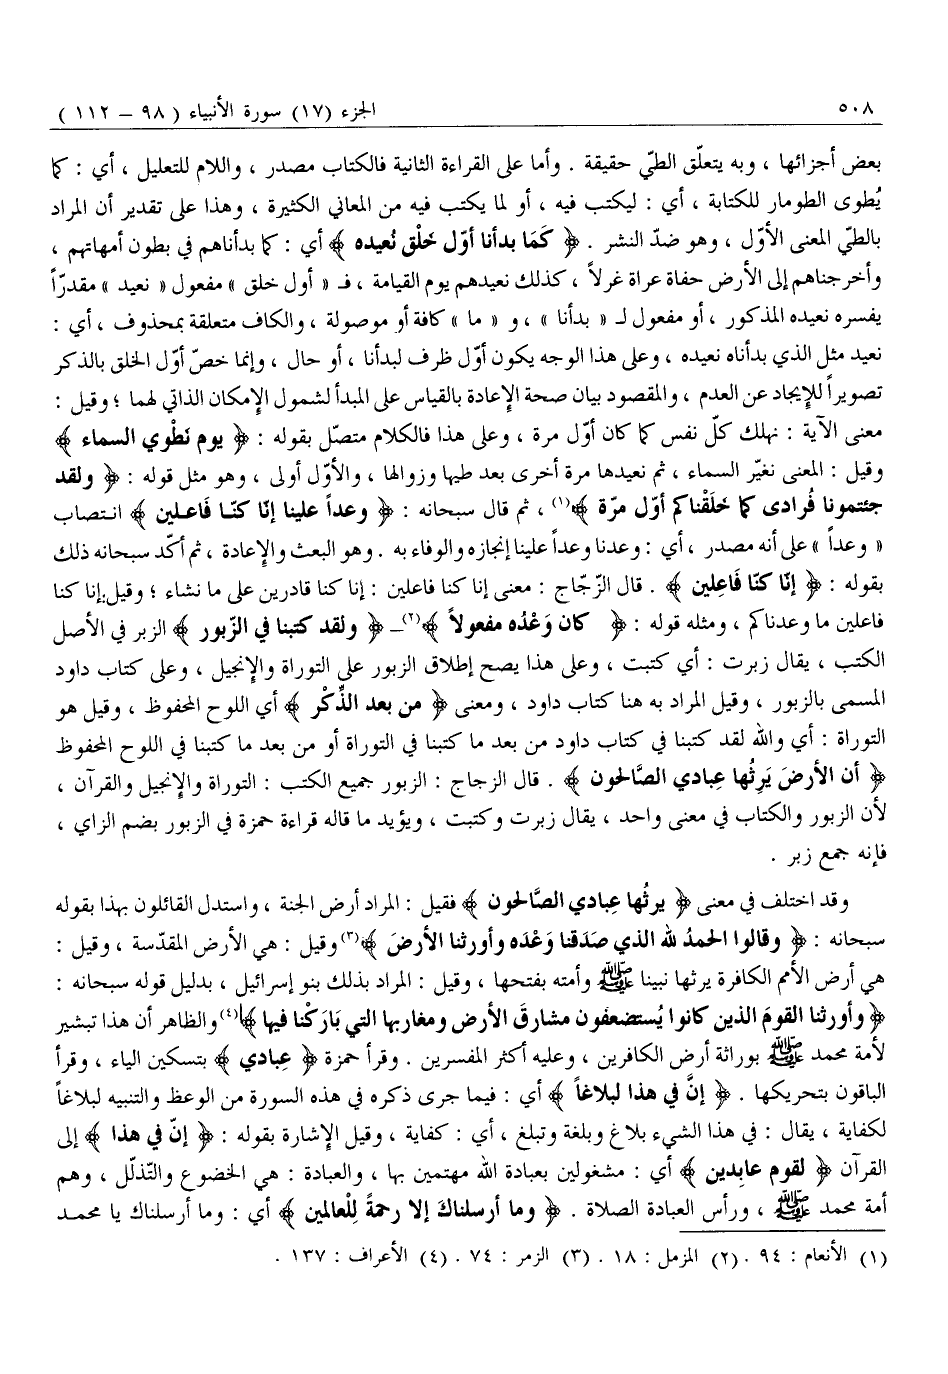 ٥٠٨ الجزء (١٧) سورة الأنبياء ( ٩٨ – ١١٢ )
بعض أجزائها ، وبه يتعلّق الطيّ حقيقة . وأما على القراءة الثانية فالكتاب مصدر ، واللام للتعليل ، أي : كما
يُطوى الطومار للكتابة ، أي : ليكتب فيه ، أو لما يكتب فيه من المعاني الكثيرة ، وهذا على تقدير أن المراد
بالطيّ المعنى الأوّل ، وهو ضدّ النشر . ﴿ كَمَا بدأنا أوّل خَلْق نُعيده ﴾ أي : كما بدأناهم في بطون أمهاتهم ،
وأخرجناهم إلى الأرض حفاة عراة غرلاً ، كذلك نعيدهم يوم القيامة ، فـ « أول خلق » مفعول « نعيد » مقدرّاً
يفسره نعيده المذكور ، أو مفعول لـ « بدأنا » ، و « ما » كافة أو موصولة ، والكاف متعلقة بمحذوف ، أي :
نعيد مثل الذي بدأناه نعيده ، وعلى هذا الوجه يكون أوّل ظرف لبدأنا ، أو حال ، وإنما خصّ أوّل الخلق بالذكر
تصويراً للإيجاد عن العدم ، والمقصود بيان صحة الإعادة بالقياس على المبدأ لشمول الإمكان الذاتي لهما ؛ وقيل :
معنى الآية : نهلك كلّ نفس كما كان أوّل مرة ، وعلى هذا فالكلام متصل بقوله : ﴿ يوم نَطْوي السماء ﴾
وقيل : المعنى نغيّر السماء ، ثم نعيدها مرة أخرى بعد طيها وزوالها ، والأوّل أولى ، وهو مثل قوله : ﴿ ولقد
جئتمونا فُرادى كما خَلَقْناكم أوّل مرّة ﴾(١) ، ثم قال سبحانه : ﴿ وعداً علينا إنّا كنّا فَاعلين ﴾ انتصاب
« وعداً » على أنه مصدر ، أي : وعدنا وعداً علينا إنجازه والوفاء به . وهو البعث والإعادة ، ثم أكّد سبحانه ذلك
بقوله : ﴿ إنّا كنّا فَاعِلين ﴾ . قال الزّجّاج : معنى إنا كنا فاعلين : إنا كنا قادرين على ما نشاء ؛ وقيل:إنا كنا
فاعلين ما وعدناكم ، ومثله قوله : ﴿ كان وَعْدُه مفعولاً ﴾(٢)ـ ﴿ ولقد كتبنا في الزّبور ﴾ الزبر في الأصل
الكتب ، يقال زبرت : أي كتبت ، وعلى هذا يصح إطلاق الزبور على التوراة والإنجيل ، وعلى كتاب داود
المسمى بالزبور ، وقيل المراد به هنا كتاب داود ، ومعنى ﴿ من بعد الذِّكْر ﴾ أي اللوح المحفوظ ، وقيل هو
التوراة : أي والله لقد كتبنا في كتاب داود من بعد ما كتبنا في التوراة أو من بعد ما كتبنا في اللوح المحفوظ
﴿ أن الأرضَ يَرِثُها عِبادي الصَّالحون ﴾ . قال الزجاج : الزبور جميع الكتب : التوراة والإنجيل والقرآن ،
لأن الزبور والكتاب في معنى واحد ، يقال زبرت وكتبت ، ويؤيد ما قاله قراءة حمزة في الزبور بضم الزاي ،
فإنه جمع زبر .
وقد اختلف في معنى ﴿ يرثُها عِبادي الصَّالحون ﴾ فقيل : المراد أرض الجنة ، واستدل القائلون بهذا بقوله
سبحانه : ﴿ وقالوا الحمدُ لله الذي صَدَقنا وَعْدَه وأورثنا الأرضَ ﴾(٣) وقيل : هي الأرض المقدّسة ، وقيل :
هي أرض الأمم الكافرة يرثها نبينا ﷺ وأمته بفتحها ، وقيل : المراد بذلك بنو إسرائيل ، بدليل قوله سبحانه :
﴿ وأورثنا القومَ الذين كانوا يُستضعفون مشارقَ الأرض ومغاربها التي بَارَكْنا فيها ﴾(٤) والظاهر أن هذا تبشير
لأمة محمد ﷺ بوراثة أرض الكافرين ، وعليه أكثر المفسرين . وقرأ حمزة ﴿ عِبادي ﴾ بتسكين الياء ، وقرأ
الباقون بتحريكها . ﴿ إنَّ في هذا لبلاغاً ﴾ أي : فيما جرى ذكره في هذه السورة من الوعظ والتنبيه لبلاغاً
لكفاية ، يقال : في هذا الشيء بلاغ وبلغة وتبلغ ، أي : كفاية ، وقيل الإشارة بقوله : ﴿ إنّ في هذا ﴾ إلى
القرآن ﴿ لقوم عابِدين ﴾ أي : مشغولين بعبادة الله مهتمين بها ، والعبادة : هي الخضوع والتّذلّل ، وهم
أمة محمد ﷺ ، ورأس العبادة الصلاة . ﴿ وما أرسلناكَ إلا رحمةً لِلْعالمين ﴾ أي : وما أرسلناك يا محمد
(١) الأنعام : ٩٤ . (٢) المزمل : ١٨ . (٣) الزمر : ٧٤ . (٤) الأعراف : ١٣٧ .